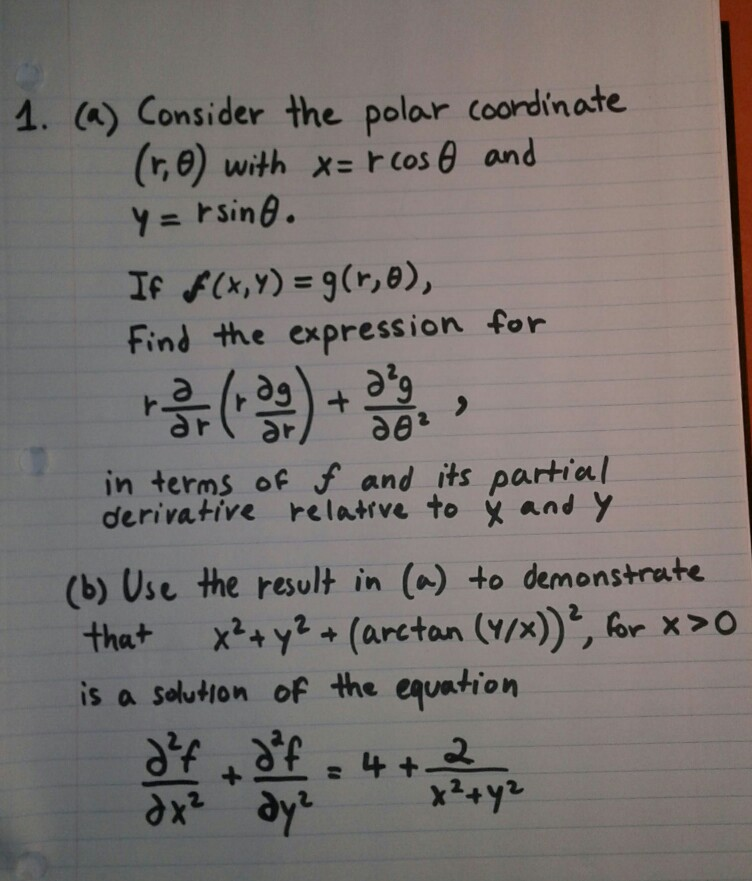 1. (a) Consider the polar coordinate
(r, θ) with x = r cos θ and
y = r sin θ.
If f(x, y) = g(r, θ),
Find the expression for
r ∂/∂r (r ∂g/∂r) + ∂²g/∂θ² ,
in terms of f and its partial
derivative relative to x and y
(b) Use the result in (a) to demonstrate
that x² + y² + (arctan (y/x))², for x > 0
is a solution of the equation
∂²f/∂x² + ∂²f/∂y² = 4 + 2/(x² + y²)